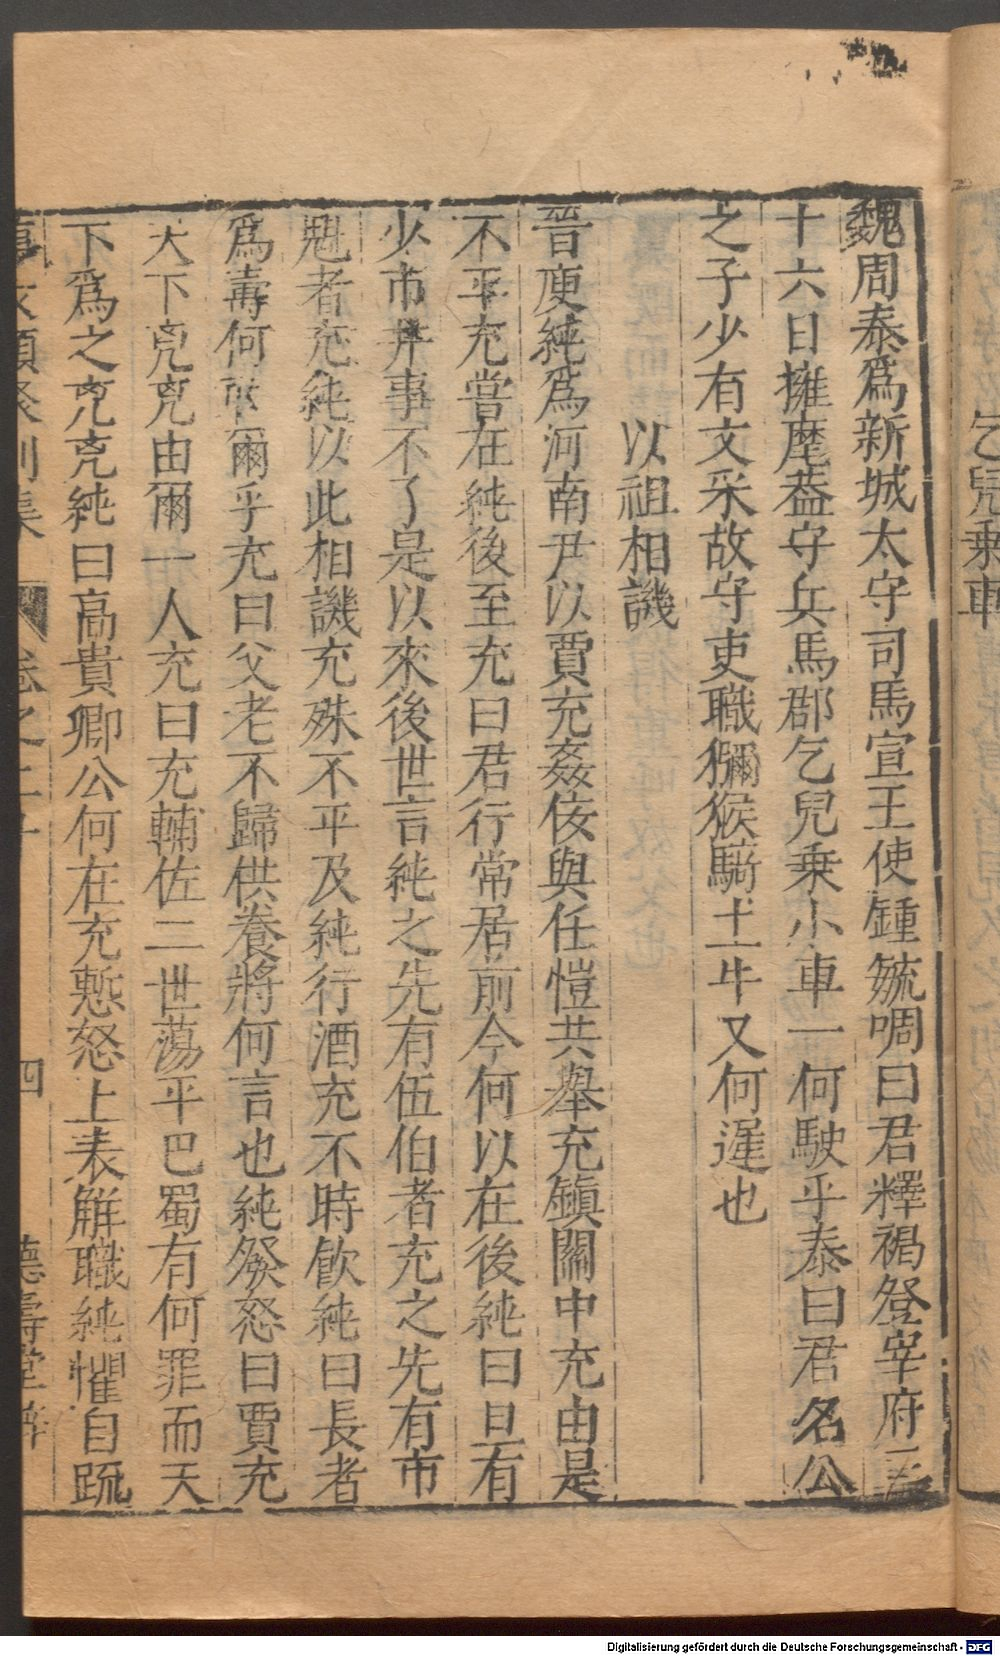 乞兒乘車
魏周泰爲新城太守司馬宣王使鍾毓啁曰君釋褐登宰府三
十六日擁麾葢守兵馬郡乞兒乘小車一何駛乎泰曰君名公
之子少有文采故守吏職獼猴騎土牛又何遲也
以祖相譏
晉庾純爲河南尹以賈充姦佞與任愷共舉充鎭關中充由是
不平充嘗在純後至充曰君行常居前今何以在後純曰旦有
少市井事不了是以來後世言純之先有伍伯者充之先有市
魁者充純以此相譏充殊不平及純行酒充不時飮純曰長者
爲壽何敢爾乎充曰父老不歸供養將何言也純發怒曰賈充
天下兇兇由爾一人充曰充輔佐二世蕩平巴蜀有何罪而天
下爲之兇兇純曰高貴卿公何在充慙怒上表解職純懼自䟽
事文類聚別集 卷之二十 四 德壽堂梓
Digitalisierung gefördert durch die Deutsche Forschungsgemeinschaft - DFG